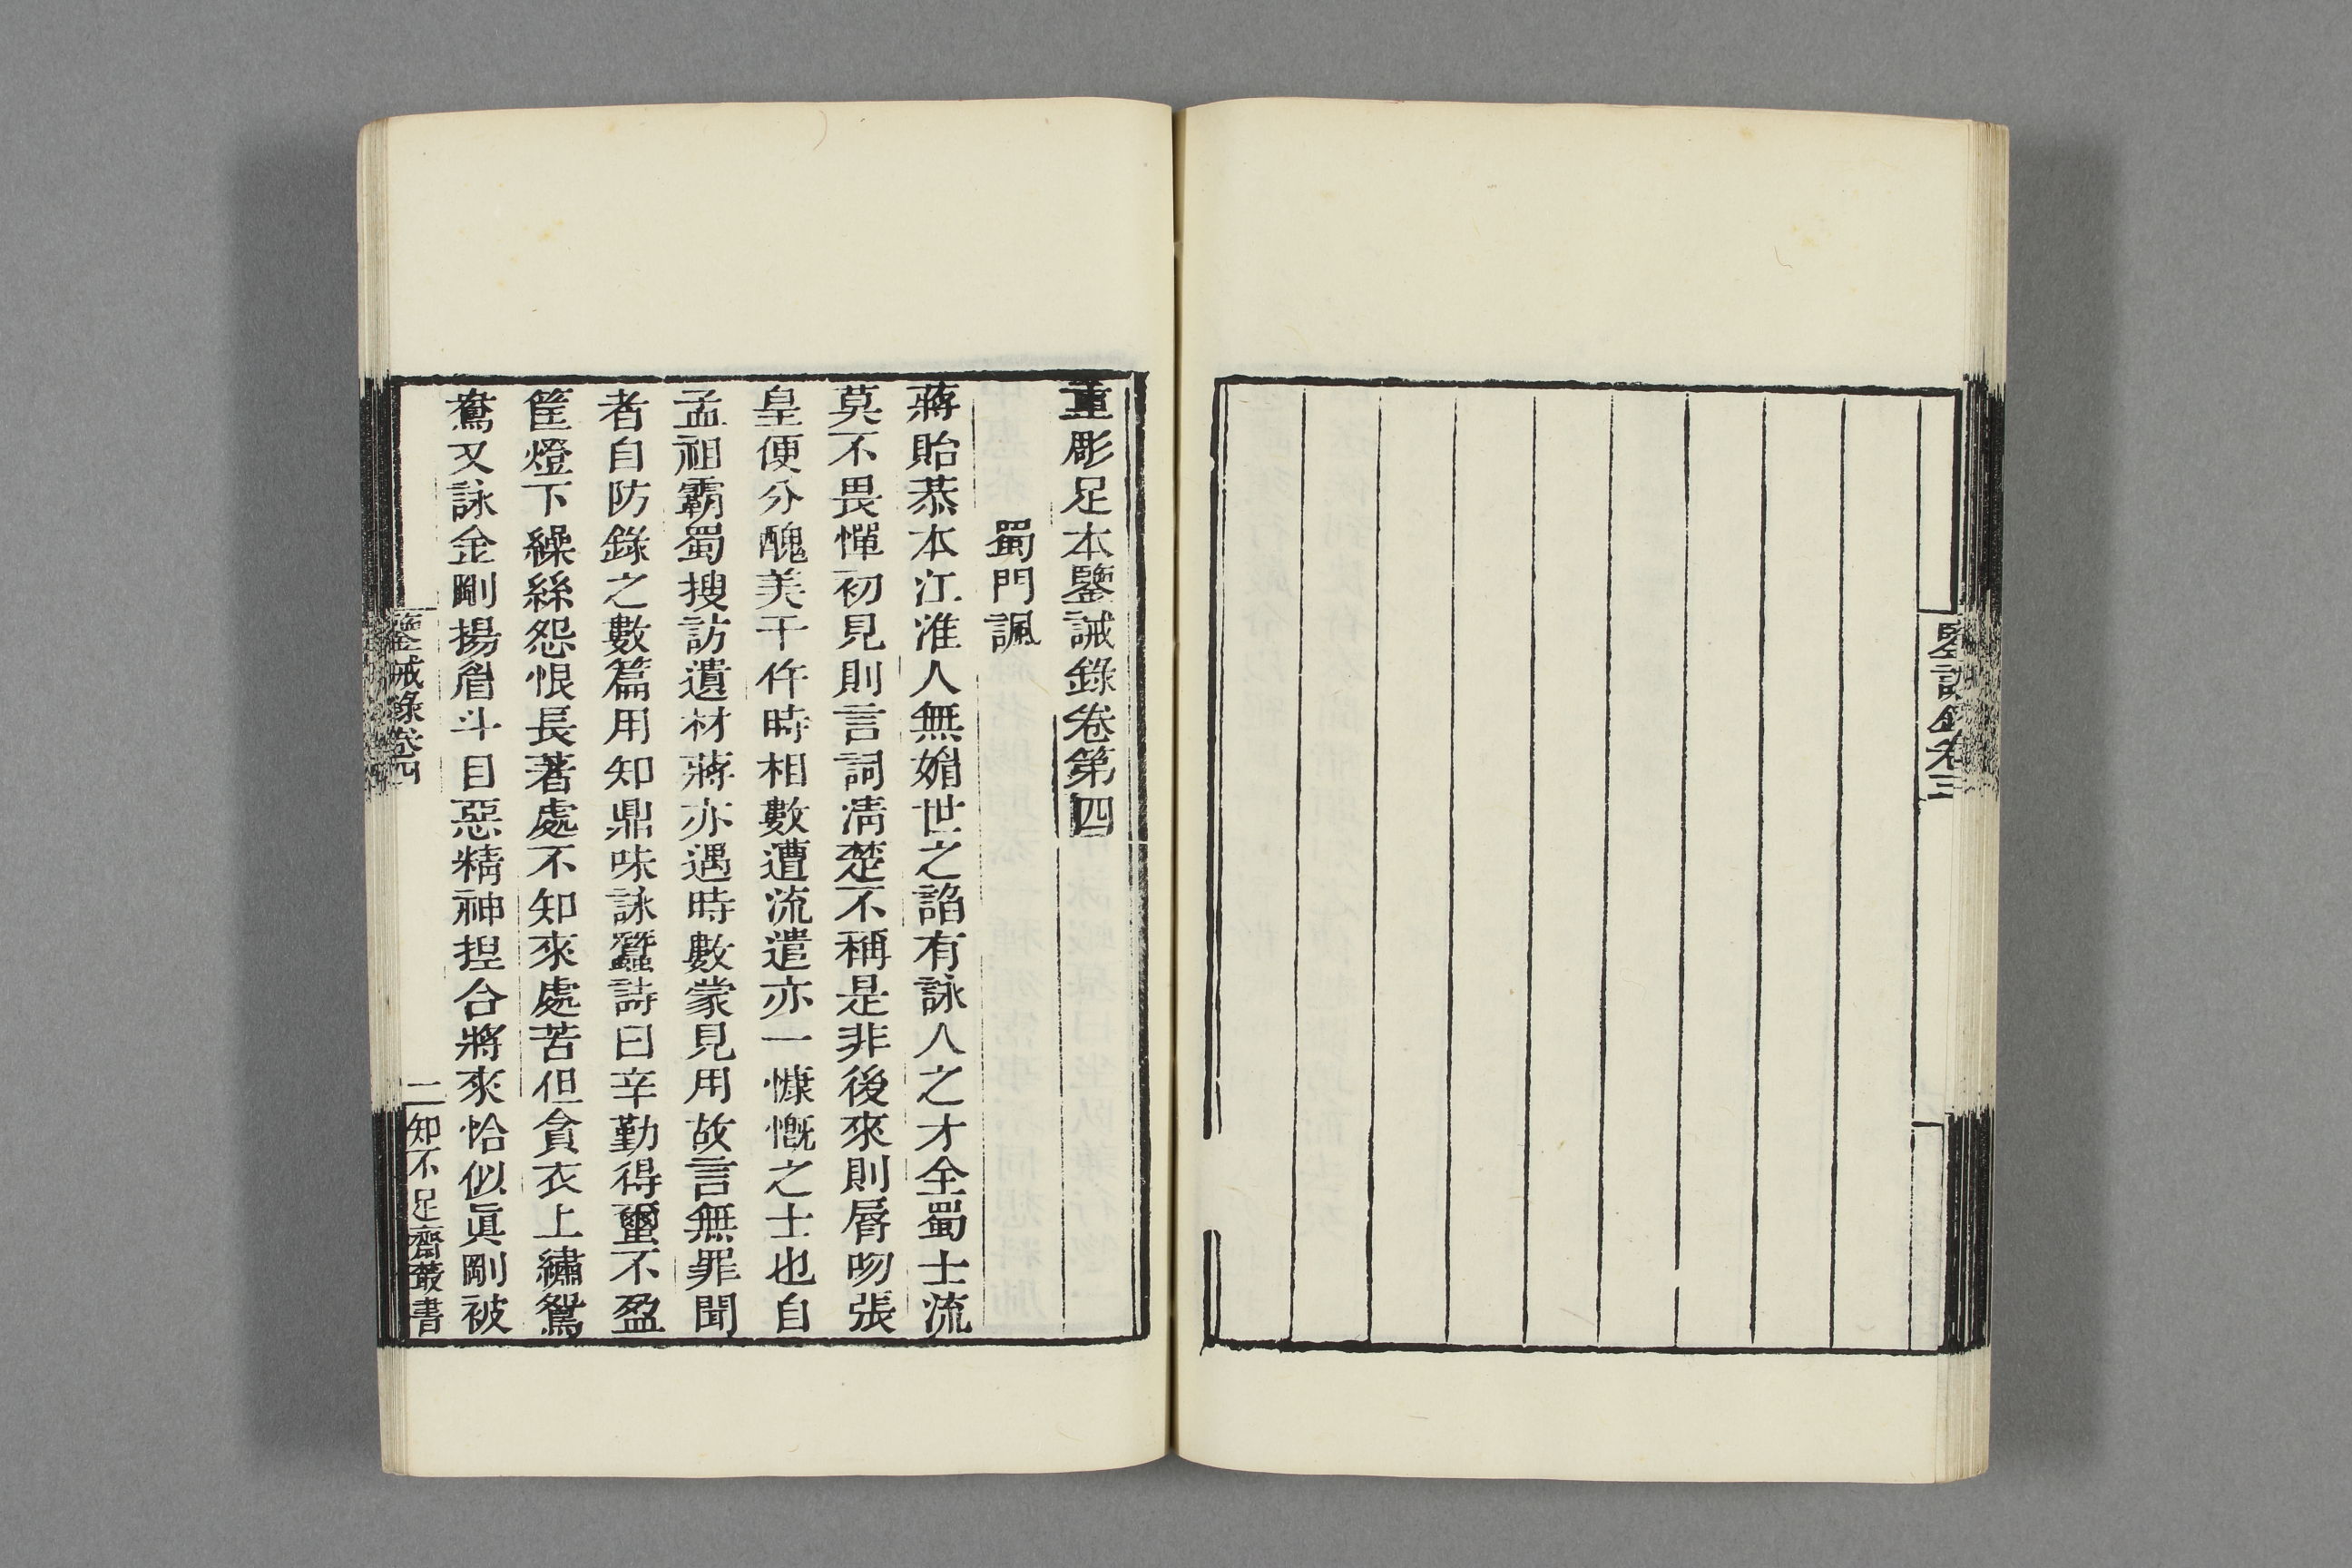 鑒誡錄卷三
重彫足本鑒誡錄卷第四
蜀門諷
蔣貽恭本江淮人無媚世之諂有詠人之才全蜀士流
莫不畏憚初見則言詞清楚不稱是非後來則脣吻張
皇便分醜美干忤時相數遭流遣亦一慷慨之士也自
孟祖霸蜀搜訪遺材蔣亦遇時數蒙見用故言無罪聞
者自防錄之數篇用知鼎味詠蠶詩曰辛勤得蠒不盈
筐燈下繰絲怨恨長著處不知來處苦但貪衣上繡鴛
鴦又詠金剛揚眉斗目惡精神捏合將來恰似眞剛被
鑒誡錄卷四
一知不足齋叢書